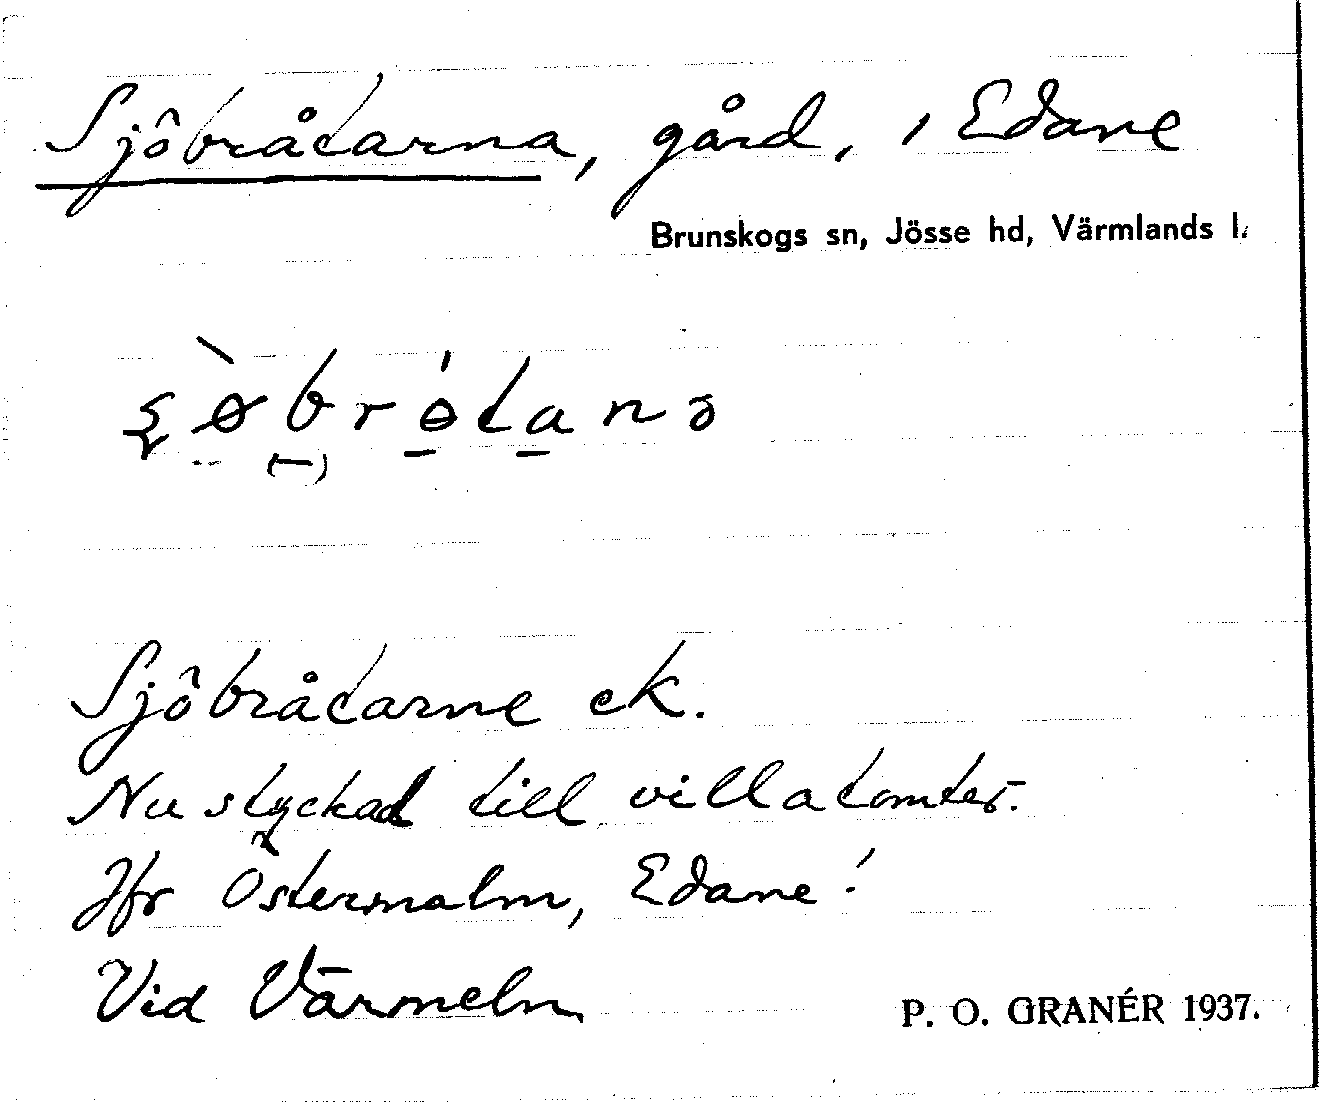 Sjöbråtarna, gård, i Edane
Brunskogs sn, Jösse hd, Värmlands l.
Sjöbråtarne ek.
Nu styckad till villatomter.
Jfr Östermalm, Edane!
Vid Värmeln
P. O. GRANÉR 1937.